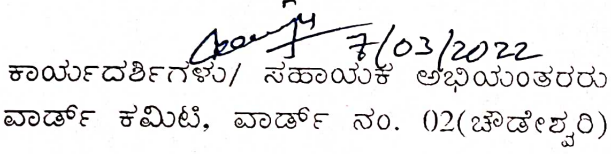 7/03/2022
ಕಾರ್ಯದರ್ಶಿಗಳು/ ಸಹಾಯಕ ಅಭಿಯಂತರರು
ವಾರ್ಡ್ ಕಮಿಟಿ, ವಾರ್ಡ್ ನಂ. 02(ಚೌಡೇಶ್ವರಿ)